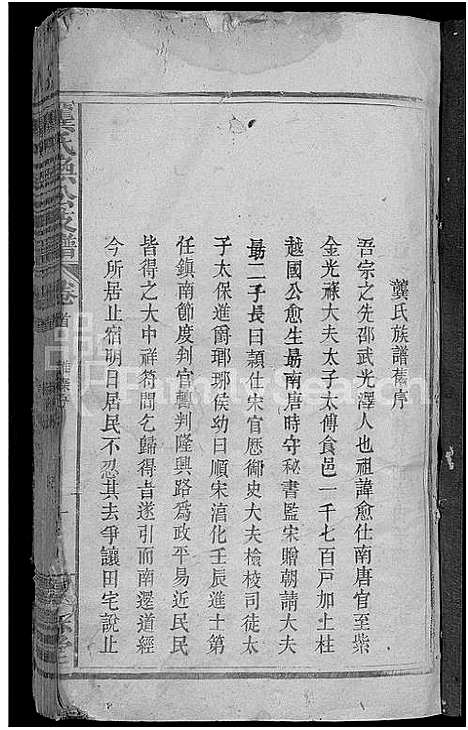 龔氏族譜舊序
吾宗之先邵武光澤人也祖諱愈仕南唐官至紫
金光祿大夫太子太傅食邑一千七百戸加上柱
越國公愈生勗南唐時守秘書監宋贈朝請大夫
勗二子長曰頴仕宋官厯御史大夫檢校司徒太
子太保進爵瑯琊侯幼曰順宋滈化壬辰進士第
任鎮南節度判官暫判隆興路為政平易近民民
皆得之大中祥符間乞歸得旨遂引而南還道經
今所居止宿明日居民不忍其去爭讓田宅說止
龔氏 支譜
卷首